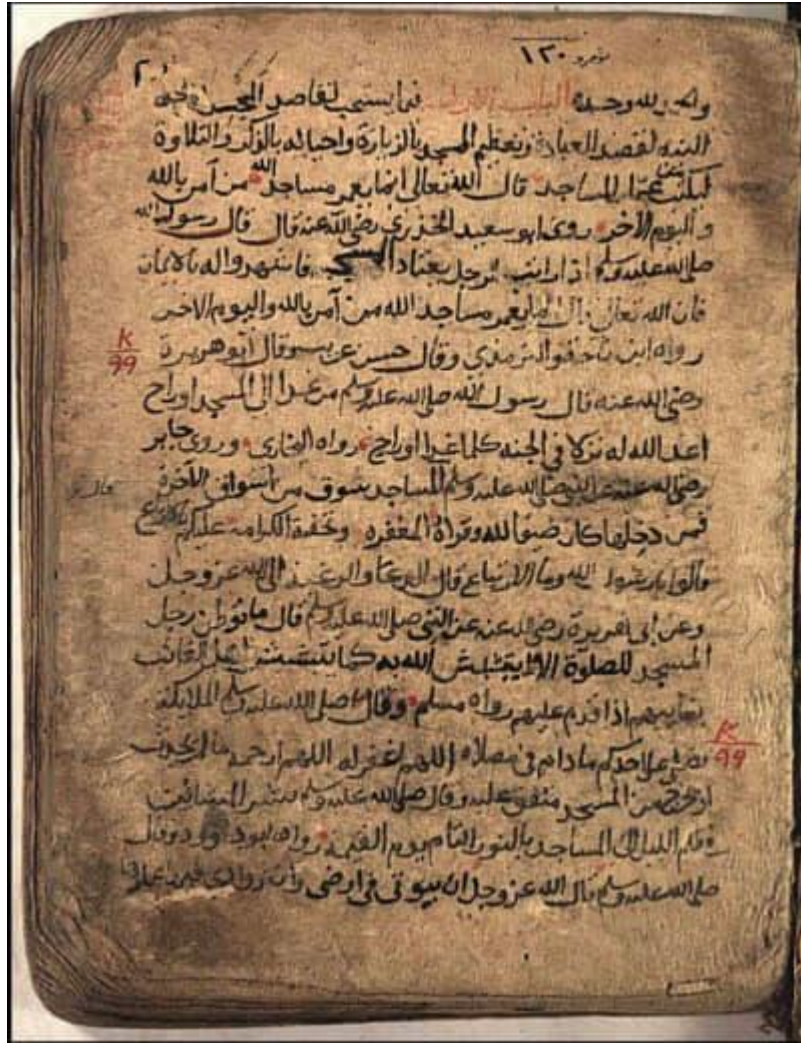 ١٢٠
والحمد لله وحده الباب فيما يستحب لقاصد المسجد
النية لقصد العبادة وتعظيم المسجد بالزيارة واحيائه بالذكر والتلاوة
المساجد قال الله تعالى انما يعمر مساجد الله من آمن بالله
واليوم الاخر روى ابو سعيد الخدري رضي الله عنه قال قال رسول الله
صلى الله عليه وسلم اذا رايتم الرجل يعتاد المسجد فاشهدوا له بالايمان
فان الله تعالى قال انما يعمر مساجد الله من آمن بالله واليوم الاخر
K
99
رواه ابن ماجه والترمذي وقال حسن غريب وقال أبو هريرة
رضي الله عنه قال رسول الله صلى الله عليه وسلم من غدا الى المسجد او راح
اعد الله له نزلا في الجنة كلما غدا او راح رواه البخاري وروى جابر
رضي الله عنه عن النبي صلى الله عليه وسلم المساجد سوق من اسواق الآخرة
فمن دخلها كان ضيفا لله وقراه المغفرة وتحفة الكرامة عليكم
قالوا يا رسول الله وما الارتباع قال الدعاء والرغبة الى الله عز وجل
وعن ابي هريرة رضي الله عنه عن النبي صلى الله عليه وسلم قال ما توطن رجل
المسجد للصلوة الا يتبشبش الله به كما يتبشبش اهل الغائب
بغايبهم اذا قدم عليهم رواه مسلم وقال صلى الله عليه وسلم الملايكة
K
99
تصلي على احدكم ما دام في مصلاه اللهم اغفر له اللهم ارحمه ما لم يحدث
او يخرج من المسجد متفق عليه وقال صلى الله عليه وسلم بشر المشائين
في ظلم الليل الى المساجد بالنور التام يوم القيمة رواه ابو داود وقال
صلى الله عليه وسلم قال الله عز وجل ان بيوتي في ارضي وان زواري فيها